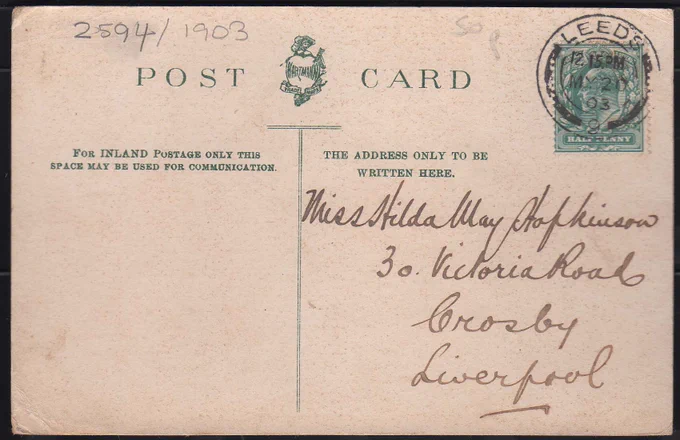 2594/1903
50p
LEEDS
12.15PM
MY 20
03
HALFPENNY
POST CARD
HARTMANN
TRADE MARK
FOR INLAND POSTAGE ONLY THIS
SPACE MAY BE USED FOR COMMUNICATION.
THE ADDRESS ONLY TO BE
WRITTEN HERE.
Miss Hilda May Hopkinson
30. Victoria Road
Crosby
Liverpool